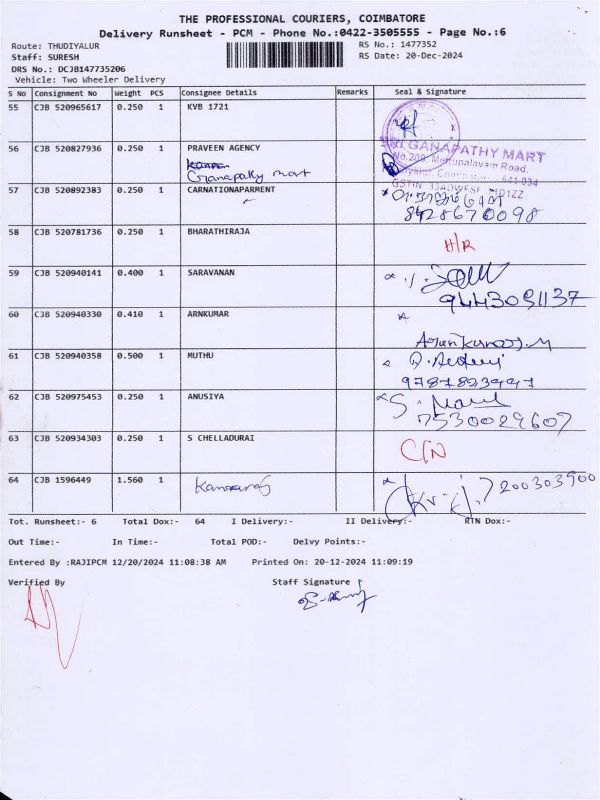 THE PROFESSIONAL COURIERS, COIMBATORE
Delivery Runsheet - PCM - Phone No.:0422-3505555 - Page No.:6
Route: THUDIYALUR
RS No.: 1477352
Staff: SURESH
RS Date: 20-Dec-2024
DRS No.: DCJB147735206
Vehicle: Two Wheeler Delivery
S No Consignment No Weight PCS Consignee Details Remarks Seal & Signature
55 CJB 520965617 0.250 1 KVB 1721
56 CJB 520827936 0.250 1 PRAVEEN AGENCY
Ganapathy mart
SRI GANAPATHY MART
No.200, Mettupalayam Road,
57 CJB 520892383 0.250 1 CARNATIONAPARMENT
8428670098
58 CJB 520781736 0.250 1 BHARATHIRAJA H/R
59 CJB 520940141 0.400 1 SARAVANAN
60 CJB 520940330 0.410 1 ARNKUMAR
Arunkumar.M
61 CJB 520940358 0.500 1 MUTHU
62 CJB 520975453 0.250 1 ANUSIYA
7530029607
63 CJB 520934303 0.250 1 S CHELLADURAI C/N
64 CJB 1596449 1.560 1 Kanagaraj
Tot. Runsheet:- 6 Total Dox:- 64 I Delivery:- II Delivery:- RTN Dox:-
Out Time:- In Time:- Total POD:- Delvy Points:-
Entered By :RAJIPCM 12/20/2024 11:08:38 AM Printed On: 20-12-2024 11:09:19
Verified By Staff Signature